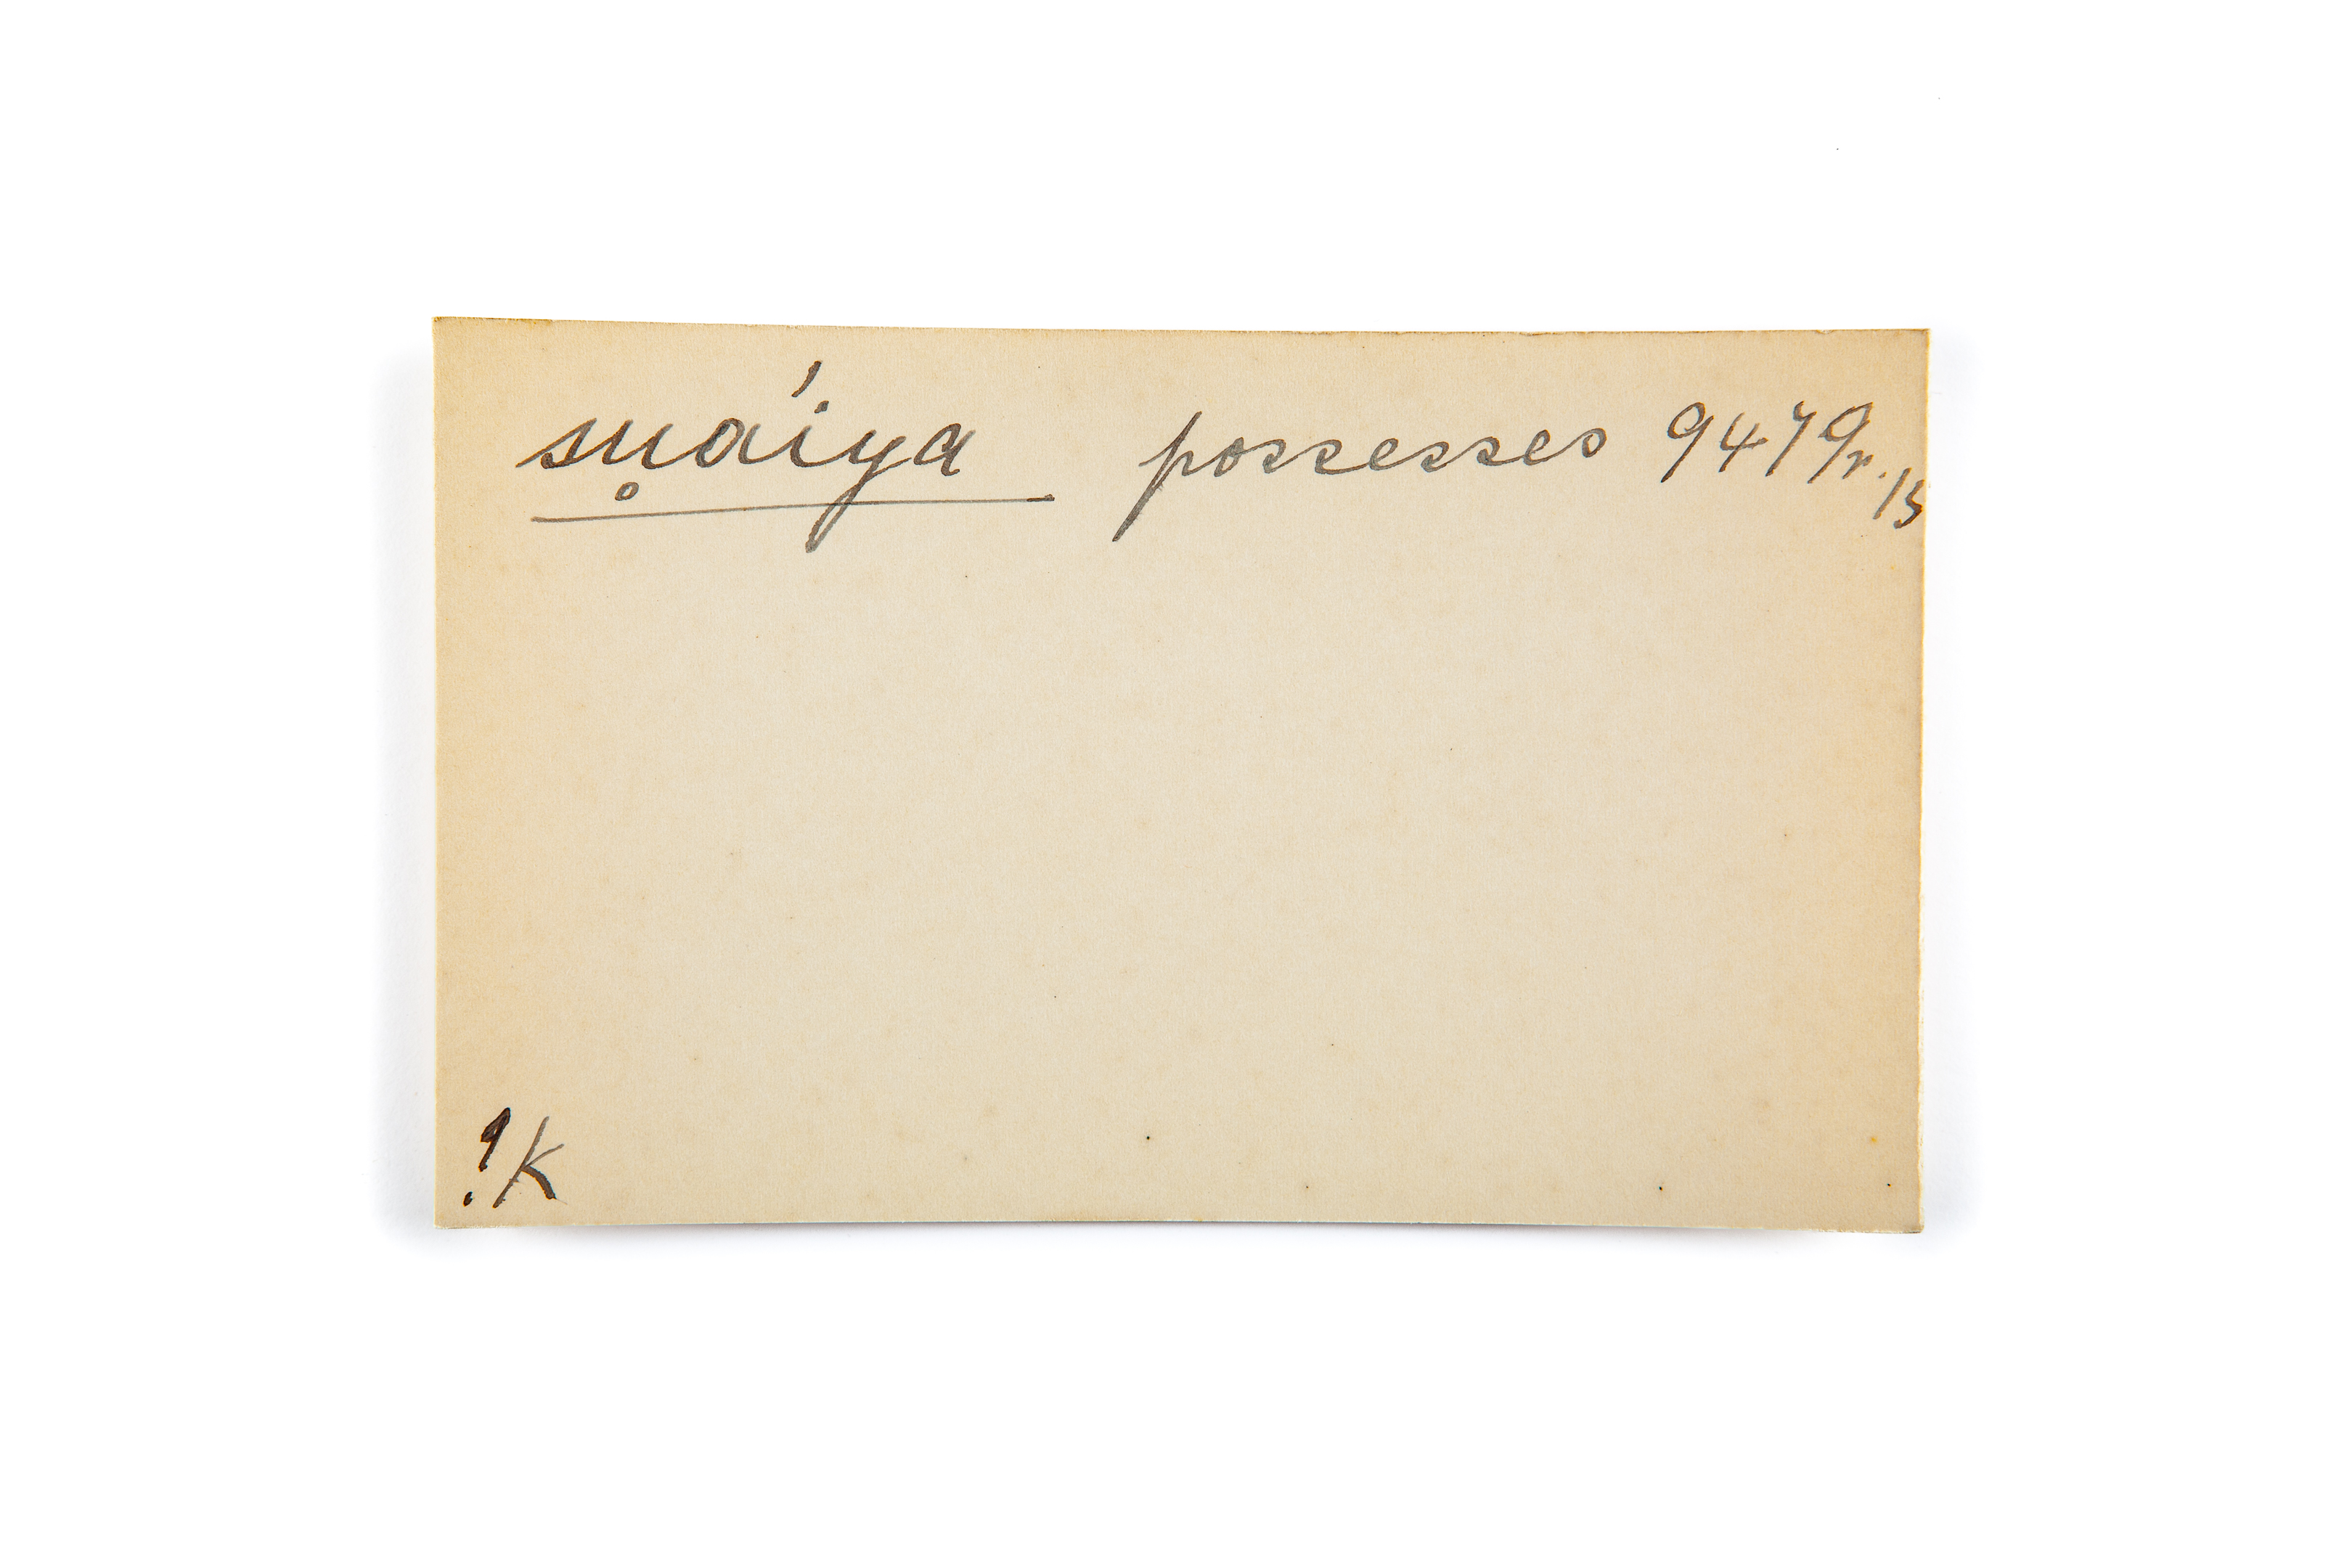 su̥áiya possesses 9479r.15
!K